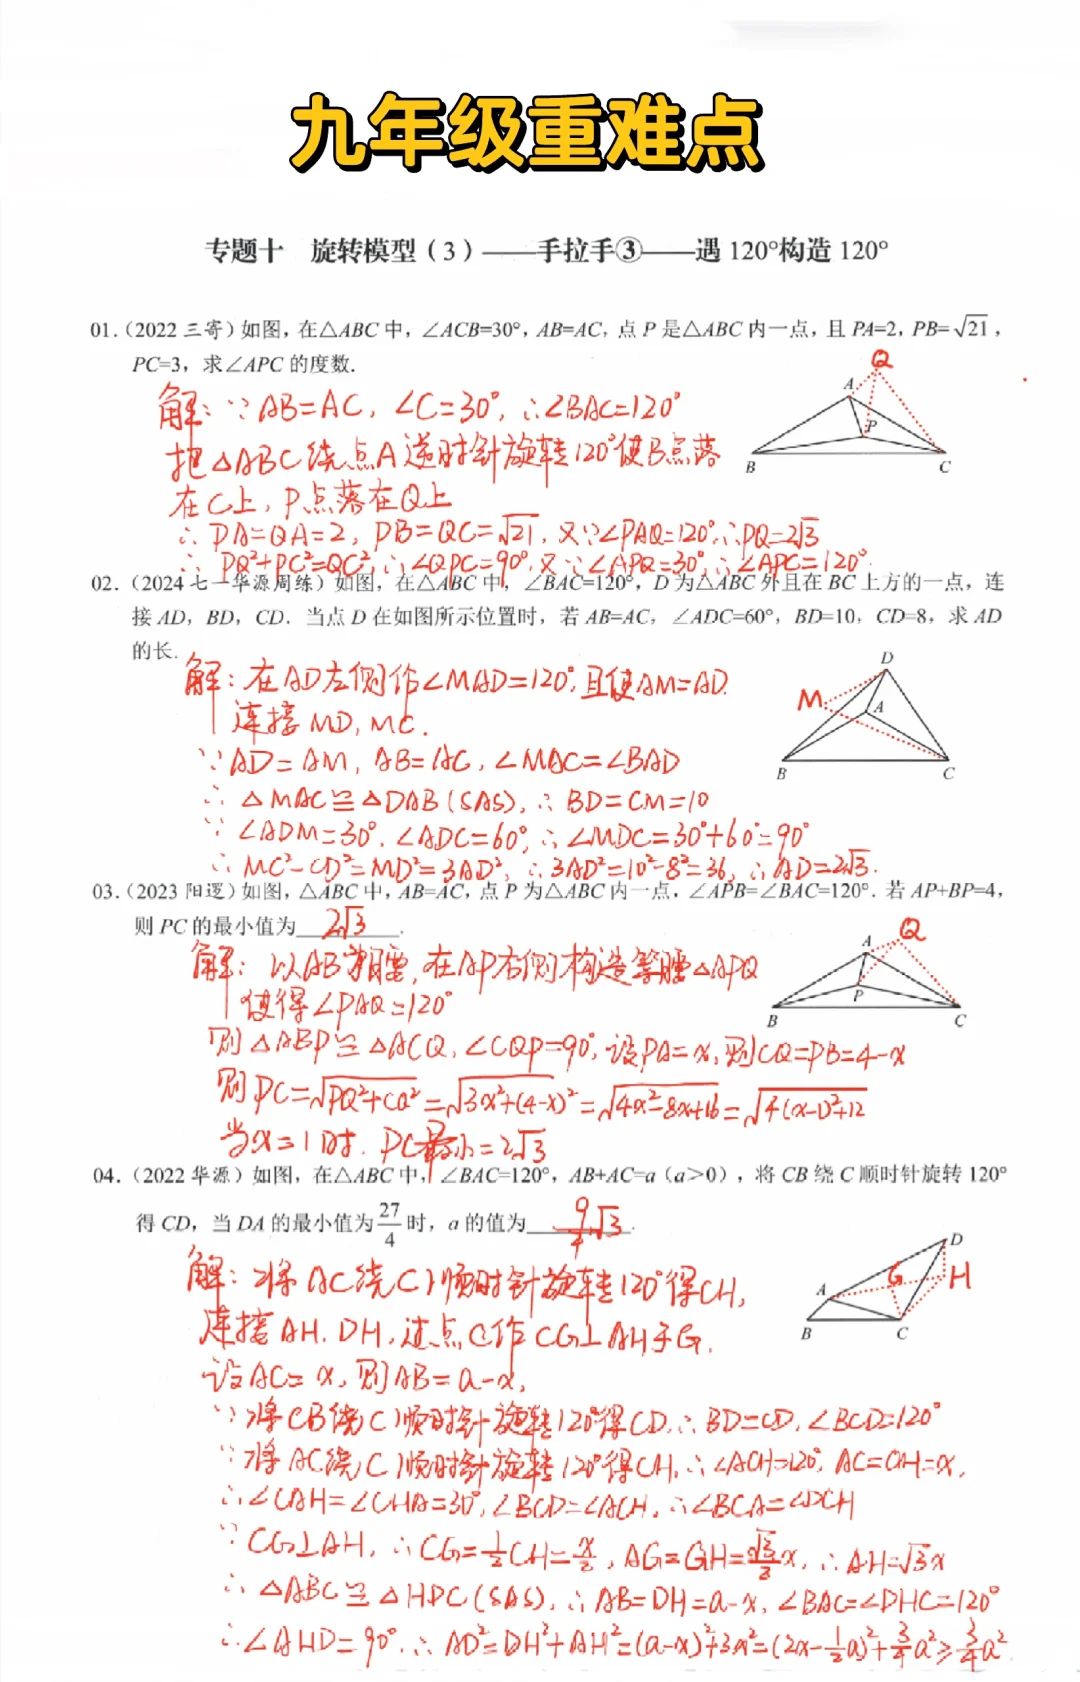 九年级重难点
专题十 旋转模型（3）——手拉手③——遇 120°构造 120°
01.（2022 三寄）如图，在△ABC 中，∠ACB=30°，AB=AC，点 P 是△ABC 内一点，且 PA=2，PB=√21，
PC=3，求∠APC 的度数.
解：∵AB=AC，∠C=30°，∴∠BAC=120°
把△ABC绕点A逆时针旋转120°使B点落
在C上，P点落在Q上
∴PA=QA=2，PB=QC=√21，又∵∠PAQ=120°，∴PQ=2√3
∴PQ²+PC²=QC²，∴∠QPC=90°，又∵∠APQ=30°，∴∠APC=120°
A
Q
P
B
C
02.（2024 七一华源周练）如图，在△ABC 中，∠BAC=120°，D 为△ABC 外且在 BC 上方的一点，连
接 AD，BD，CD．当点 D 在如图所示位置时，若 AB=AC，∠ADC=60°，BD=10，CD=8，求 AD
的长.
解：在AD左侧作∠MAD=120°，且使AM=AD.
连接MD，MC.
∵AD=AM，AB=AC，∠MAC=∠BAD
∴△MAC≌△DAB(SAS)，∴BD=CM=10
∵∠ADM=30°，∠ADC=60°，∴∠MDC=30°+60°=90°
∴MC²-CD²=MD²=3AD²，∴3AD²=10²-8²=36，∴AD=2√3.
D
M
A
B
C
03.（2023 阳逻）如图，△ABC 中，AB=AC，点 P 为△ABC 内一点，∠APB=∠BAC=120°．若 AP+BP=4，
则 PC 的最小值为 2√3 .
解：以AB为腰，在AP右侧构造等腰△APQ
使得∠PAQ=120°
则△ABP≌△ACQ，∠CQP=90°，设PA=x，则CQ=PB=4-x
则PC=√PQ²+CQ²=√3x²+(4-x)²=√4x²-8x+16=√4(x-1)²+12
当x=1时．PC最小=2√3
A
Q
P
B
C
04.（2022 华源）如图，在△ABC 中，∠BAC=120°，AB+AC=a（a>0），将 CB 绕 C 顺时针旋转 120°
得 CD，当 DA 的最小值为 27/4 时，a 的值为 9/2√3 .
解：将AC绕C顺时针旋转120°得CH，
连接AH．DH，过点C作CG⊥AH于G.
设AC=x，则AB=a-x，
∵将CB绕C顺时针旋转120°得CD，∴BD=CD，∠BCD=120°
∵将AC绕C顺时针旋转120°得CH，∴∠ACH=120°，AC=CH=x，
∴∠CAH=∠CHA=30°，∠BCD=∠ACH，∴∠BCA=∠DCH
∵CG⊥AH，∴CG=1/2CH=x/2，AG=GH=√3/2x，∴AH=√3x
∴△ABC≌△HDC(SAS)，∴AB=DH=a-x，∠BAC=∠DHC=120°
∴∠AHD=90°．∴AD²=DH²+AH²=(a-x)²+3x²=(2x-1/2a)²+3/4a²≥3/4a²
D
G
H
A
B
C